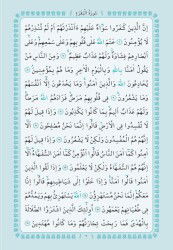 سُورَةُ البَقَرَةِ
إِنَّ الَّذِينَ كَفَرُوا سَوَاءٌ عَلَيْهِمْ ءَأَنذَرْتَهُمْ أَمْ لَمْ تُنذِرْهُمْ
لَا يُؤْمِنُونَ ۝ خَتَمَ اللَّهُ عَلَىٰ قُلُوبِهِمْ وَعَلَىٰ سَمْعِهِمْ وَعَلَىٰ
أَبْصَٰرِهِمْ غِشَٰوَةٌ وَلَهُمْ عَذَابٌ عَظِيمٌ ۝ وَمِنَ النَّاسِ مَن
يَقُولُ ءَامَنَّا بِاللَّهِ وَبِالْيَوْمِ الْءَاخِرِ وَمَا هُم بِمُؤْمِنِينَ ۝
يُخَٰدِعُونَ اللَّهَ وَالَّذِينَ ءَامَنُوا وَمَا يَخْدَعُونَ إِلَّا أَنفُسَهُمْ
وَمَا يَشْعُرُونَ ۝ فِي قُلُوبِهِم مَّرَضٌ فَزَادَهُمُ اللَّهُ مَرَضًا
وَلَهُمْ عَذَابٌ أَلِيمٌ بِمَا كَانُوا يَكْذِبُونَ ۝ وَإِذَا قِيلَ لَهُمْ
لَا تُفْسِدُوا فِي الْأَرْضِ قَالُوا إِنَّمَا نَحْنُ مُصْلِحُونَ ۝ أَلَا إِنَّهُمْ
هُمُ الْمُفْسِدُونَ وَلَٰكِن لَّا يَشْعُرُونَ ۝ وَإِذَا قِيلَ لَهُمْ
ءَامِنُوا كَمَا ءَامَنَ النَّاسُ قَالُوا أَنُؤْمِنُ كَمَا ءَامَنَ السُّفَهَاءُ أَلَا
إِنَّهُمْ هُمُ السُّفَهَاءُ وَلَٰكِن لَّا يَعْلَمُونَ ۝ وَإِذَا لَقُوا الَّذِينَ
ءَامَنُوا قَالُوا ءَامَنَّا وَإِذَا خَلَوْا إِلَىٰ شَيَٰطِينِهِمْ قَالُوا إِنَّا
مَعَكُمْ إِنَّمَا نَحْنُ مُسْتَهْزِءُونَ ۝ اللَّهُ يَسْتَهْزِئُ بِهِمْ وَيَمُدُّهُمْ
فِي طُغْيَٰنِهِمْ يَعْمَهُونَ ۝ أُولَٰئِكَ الَّذِينَ اشْتَرَوُا الضَّلَٰلَةَ
بِالْهُدَىٰ فَمَا رَبِحَت تِّجَٰرَتُهُمْ وَمَا كَانُوا مُهْتَدِينَ ۝